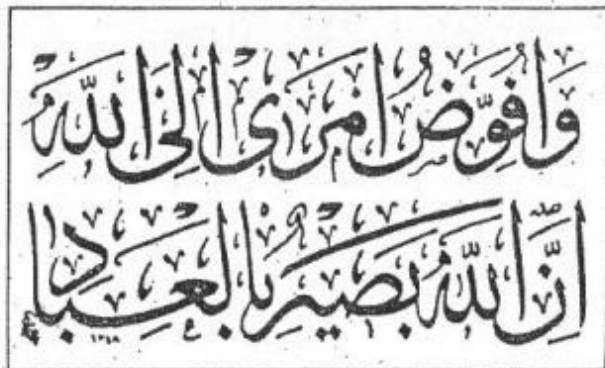 وَاُفَوِّضُ اَمْرِىٓ اِلَى اللّٰهِ
اِنَّ اللّٰهَ بَصِيرٌ بِالْعِبَادِ